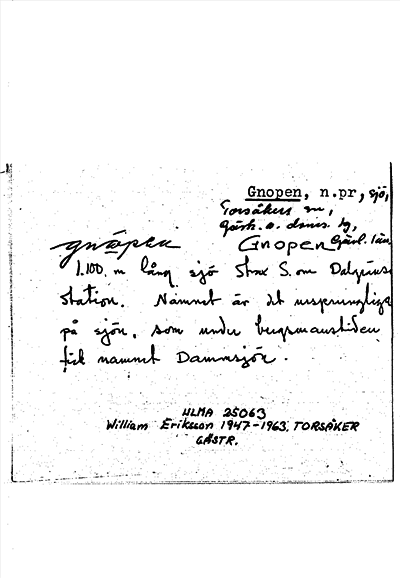 Gnopen, n.pr, sjö,
Torsåkers sn,
Gästr. ö. doms. hg,
gnöpen Gnopen Gävl. län
1.100. m lång sjö strax S. om Dalgränse
station. Namnet är det ursprungliga
på sjön, som under bergsmanstiden
fick namnet Dammsjön.
ULMA 25063
William Eriksson 1947-1963. TORSÅKER
GÄSTR.